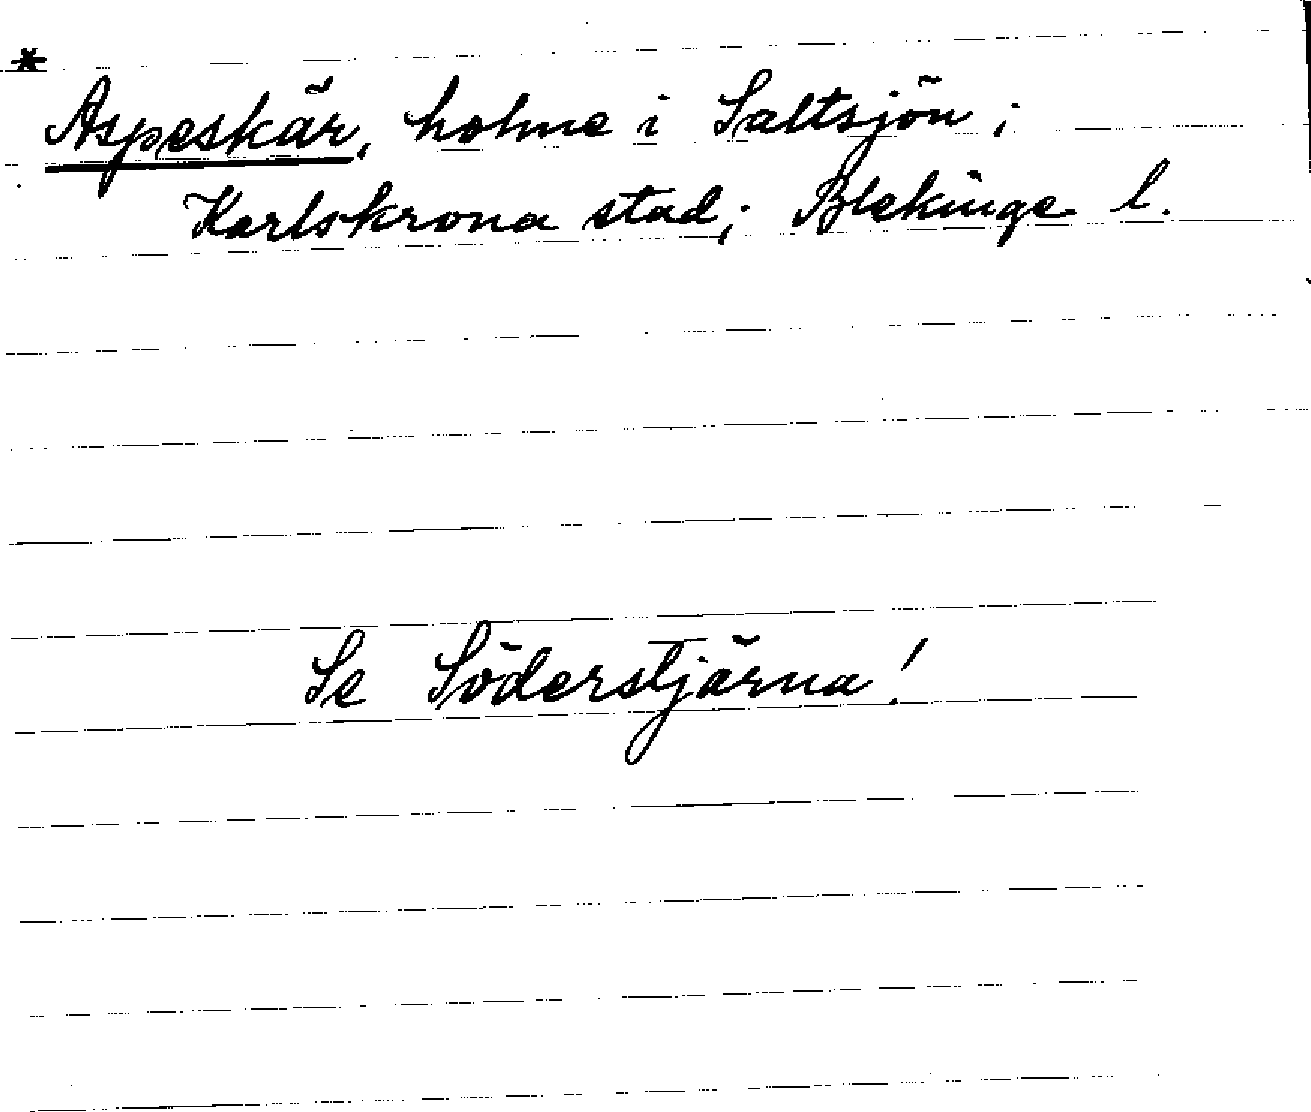 *
Aspeskär, holme i Saltsjön;
Karlskrona stad; Blekinge l.
Se Söderstjärna!